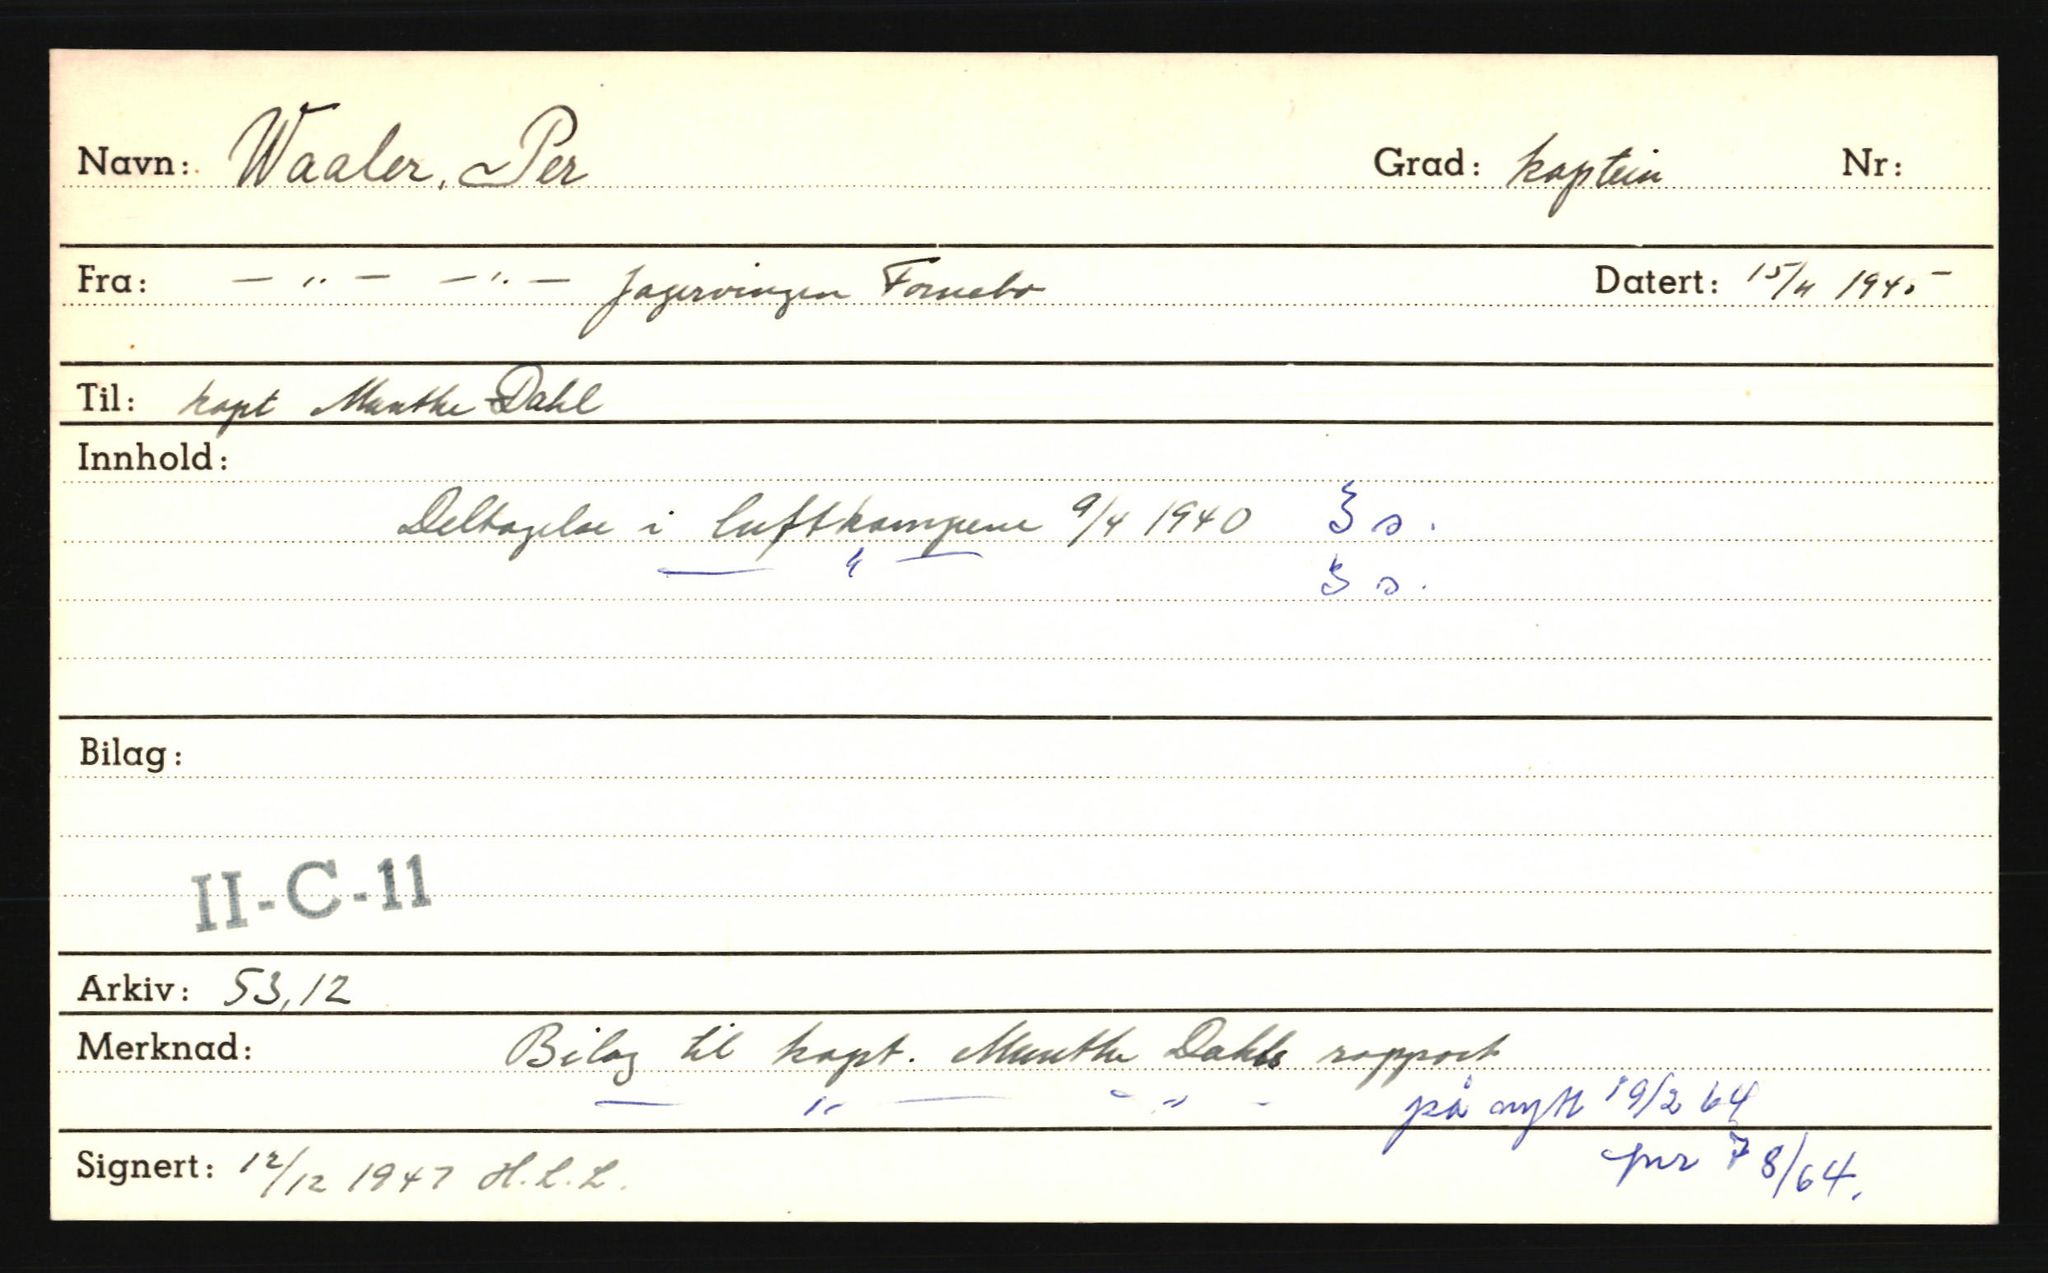 Navn: Waaler, Per Grad: kaptein Nr:
Fra: — " — — " — Jagervingen Fornebo Datert: 15/11 1945
Til: kapt Munthe-Dahl
Innhold:
Deltagelse i luftkampene 9/4 1940 3 s.
— " — 3 s.
Bilag:
II-C-11
Arkiv: 53,12
Merknad: Bilag til kapt. Munthe Dahls rapport
— " — - " - på nytt 19/2 64
jnr 78/64.
Signert: 12/12 1947 H.L.L.